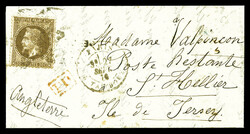 Madame Valpinçon
Poste Restante
St Hellier
Angleterre
Ile de Jersey